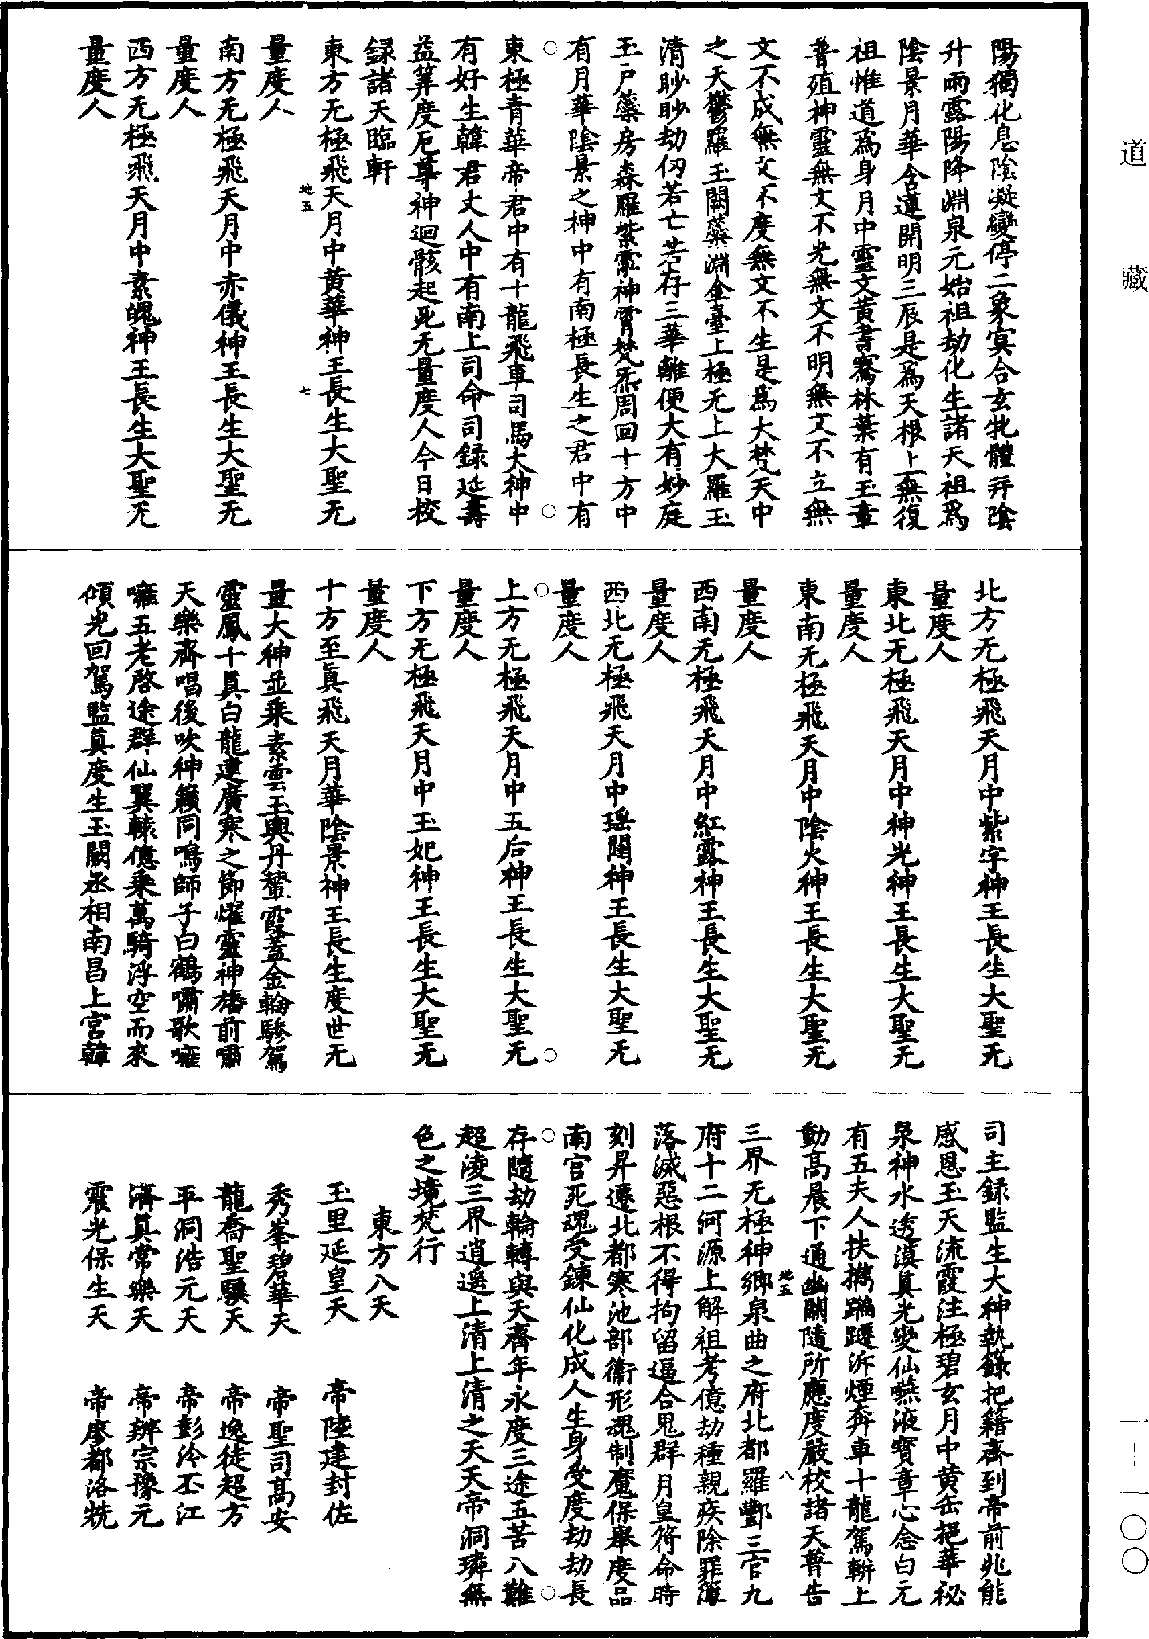 道藏
一-一〇〇
陽獨化息陰凝變停二象㝠合玄牝體幷陰
升雨露陽降淵泉元始祖劫化生諸天祖爲
陰景月華含遵開明三辰是爲天根上無復
祖惟道爲身月中靈文黃書騫林葉有玉章
普殖神靈無文不光無文不明無文不立無
文不成無文不度無文不生是爲大梵天中
之天鬱羅玉闕蘂淵金臺上極无上大羅玉
清眇眇劫仞若亡若存三華離便大有妙庭
玉戶蘂房森羅紫霐神霄梵炁周回十方中
有月華陰景之神中有南極長生之君中有
東極青華帝君中有十龍飛車司馬大神中
有好生韓君丈人中有南上司命司錄延壽
益筭度厄尊神迴骸起死无量度人今日校
録諸天臨軒
東方无極飛天月中黃華神王長生大聖无
量度人
地五
七
南方无極飛天月中赤儀神王長生大聖无
量度人
西方无極飛天月中素魄神王長生大聖无
量度人
北方无極飛天月中紫字神王長生大聖无
量度人
東北无極飛天月中神光神王長生大聖无
量度人
東南无極飛天月中陰火神王長生大聖无
量度人
西南无極飛天月中紅露神王長生大聖无
量度人
西北无極飛天月中瑶闈神王長生大聖无
量度人
上方无極飛天月中五后神王長生大聖无
量度人
下方无極飛天月中玉妃神王長生大聖无
量度人
十方至眞飛天月華陰景神王長生度世无
量大神並乘素雲玉輿丹輦霞蓋金輪驂駕
靈鳳十眞白龍建廣寒之節燿靈神旛前嘯
天樂齊唱後吹神籟同鳴師子白鶴嘯歌噰
噰五老啓途群仙翼轅億乘萬騎浮空而來
傾光回駕監眞度生玉闕丞相南昌上宮韓
司主録監生大神執籙把籍齊到帝前兆能
感恩玉天流霞注極碧玄月中黃缶挹華祕
泉神水透滇眞光變仙嚥液寶章心念白元
有五夫人扶攜躡躔泝煙奔車十龍駕輧上
動高晨下通幽關隨所應度嚴校諸天普告
地五
八
三界无極神鄉泉曲之府北都羅酆三官九
府十二何源上解祖考億劫種親疾除罪簿
落滅惡根不得拘留逼合鬼群月皇符命時
刻昇遷北都寒池部衛形魂制魔保舉度品
南宮死魂受鍊仙化成人生身受度劫劫長
存隨劫輪轉與天齊年永度三途五苦八難
超淩三界逍遥上清上清之天天帝洞璘無
色之境梵行
東方八天
玉里延皇天　帝陸建封佐
秀峯碧華天　帝聖司高安
龍喬聖驥天　帝逸徒超方
平洞浩元天　帝彭泠丕江
濟眞常樂天　帝辨宗豫元
震光保生天　帝廖都洛㷪